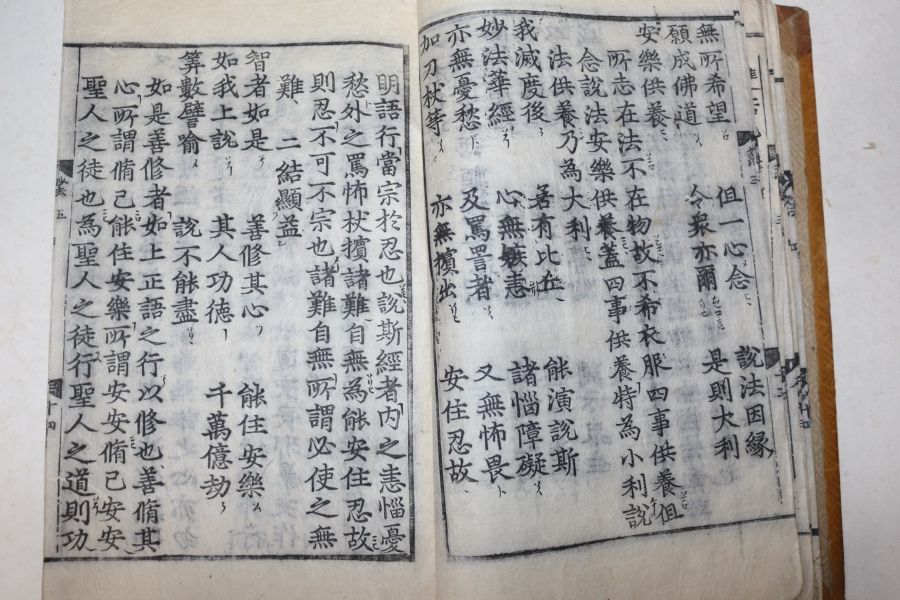 無所希望 但一心念 說法因緣
願成佛道 令衆亦爾 是則大利
安樂供養
所志在法不在物故不希衣服四事供養但
念說法安樂供養蓋四事供養特為小利說
法供養乃為大利
我滅度後 若有比丘 能演說斯
妙法華經 心無嫉恚 諸惱障礙
亦無憂愁 及罵詈者 又無怖畏
加刀杖等 亦無擯出 安住忍故
明語行當宗於忍也說斯經者內之恚惱憂
愁外之罵怖杖擯諸難自無為能安住忍故
則忍不可不宗也諸難自無所謂必使之無
難 二結顯益
智者如是 善修其心 能住安樂
如我上說 其人功德 千萬億劫
筭數譬喻 說不能盡
如是善修者如上正語之行以修也善脩其
心所謂脩己能住安樂所謂安安脩己安安
聖人之徒也為聖人之徒行聖人之道則功
十四